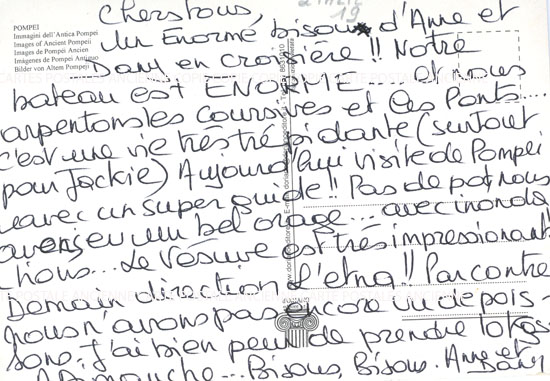 POMPEI
Immagini dell'Antica Pompei
Images of Ancient Pompeii
Images de Pompei Ancien
Imágenes de Pompei Antiguo
Bilder von Altem Pompeii
19
Chers tous,
Un Enorme bisou d'Anne et
Dany en croisière !! Notre
bateau est ENORME.... et nous
arpentons les coursives et les Ponts....
c'est une vie très trépidante (surtout
pour Jackie) Aujourd'hui visite de Pompei
avec un super guide !! Pas de pot, nous
avons eu un bel orage... avec inonda
tions... Le Vésuve est très impressionant
Demain direction L'etna !! Par contre
nous n'avons pas encore vu de pois-
sons. J'ai bien peur de prendre kgs
Dimanche... Bisous, Bisous. Anne et
Dany